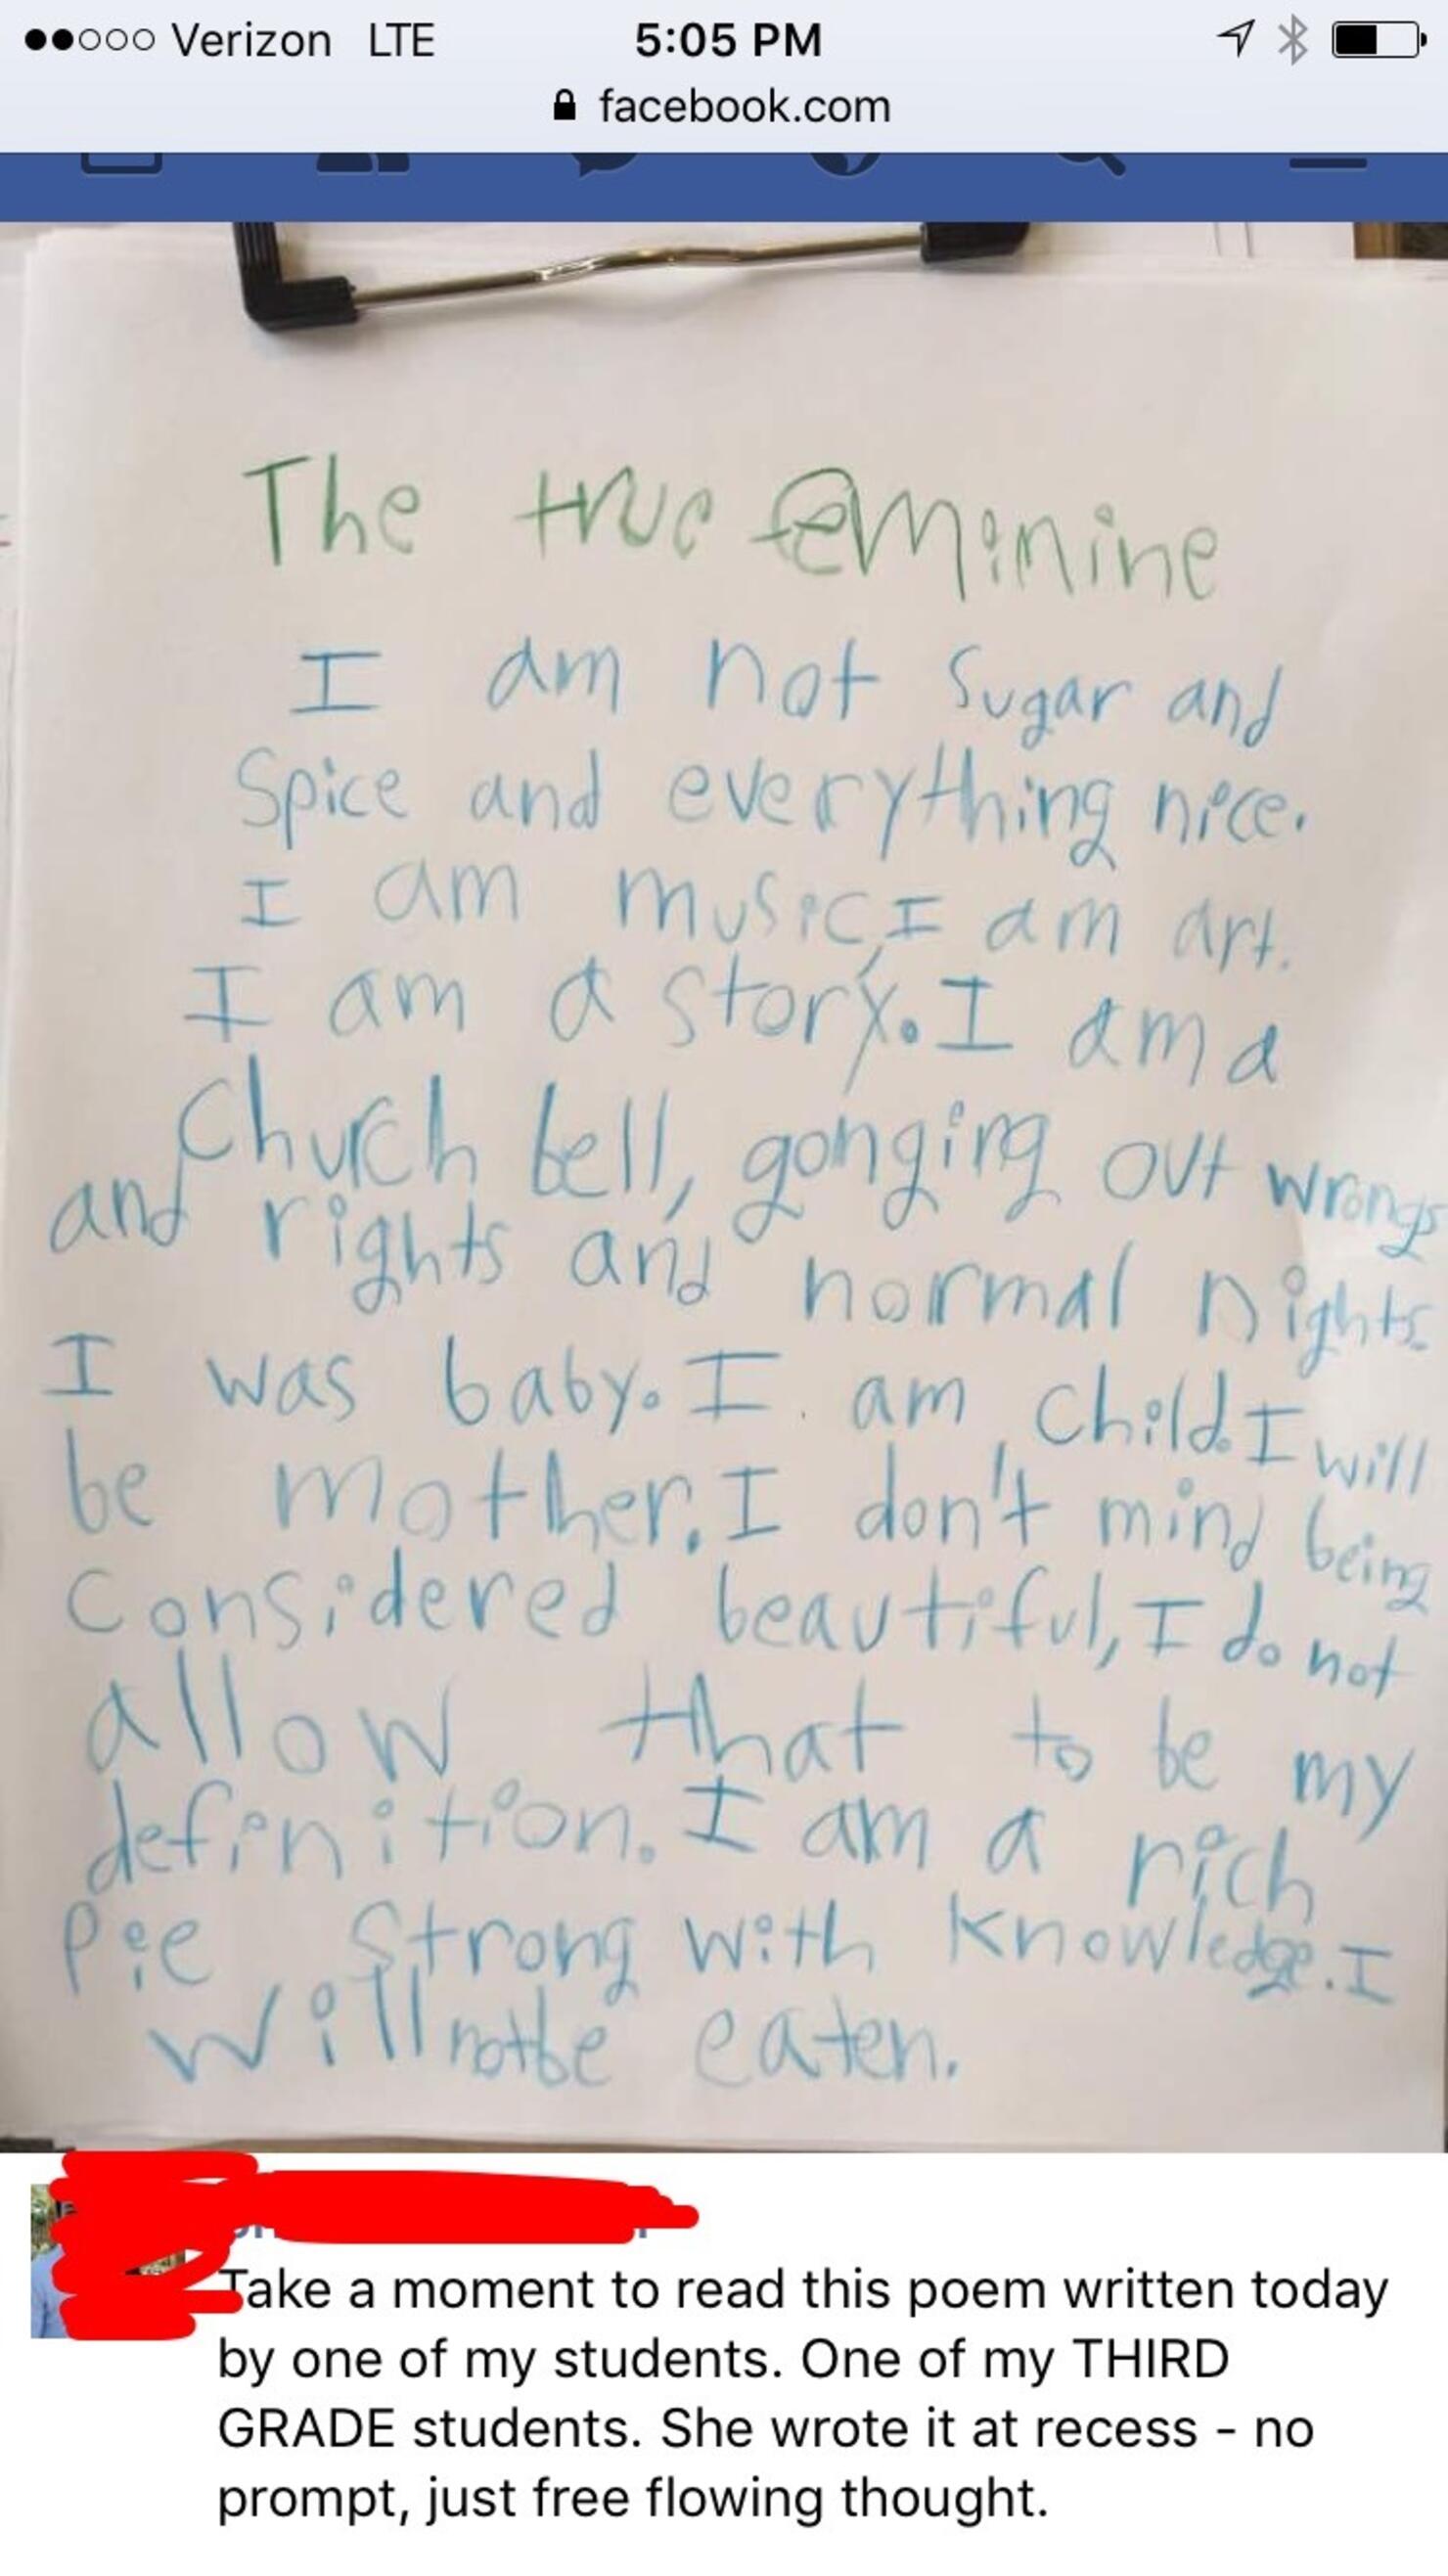 Verizon LTE 5:05 PM
facebook.com
The true feminine
I am not Sugar and
Spice and everything nice.
I am music, I am art.
I am a story. I am a
Church bell, gonging out wrongs
and rights and normal nights.
I was baby. I am child. I will
be mother. I don't mind being
Considered beautiful, I do not
allow that to be my
definition. I am a rich
Pie Strong with knowledge. I
will not be eaten.
Take a moment to read this poem written today
by one of my students. One of my THIRD
GRADE students. She wrote it at recess - no
prompt, just free flowing thought.